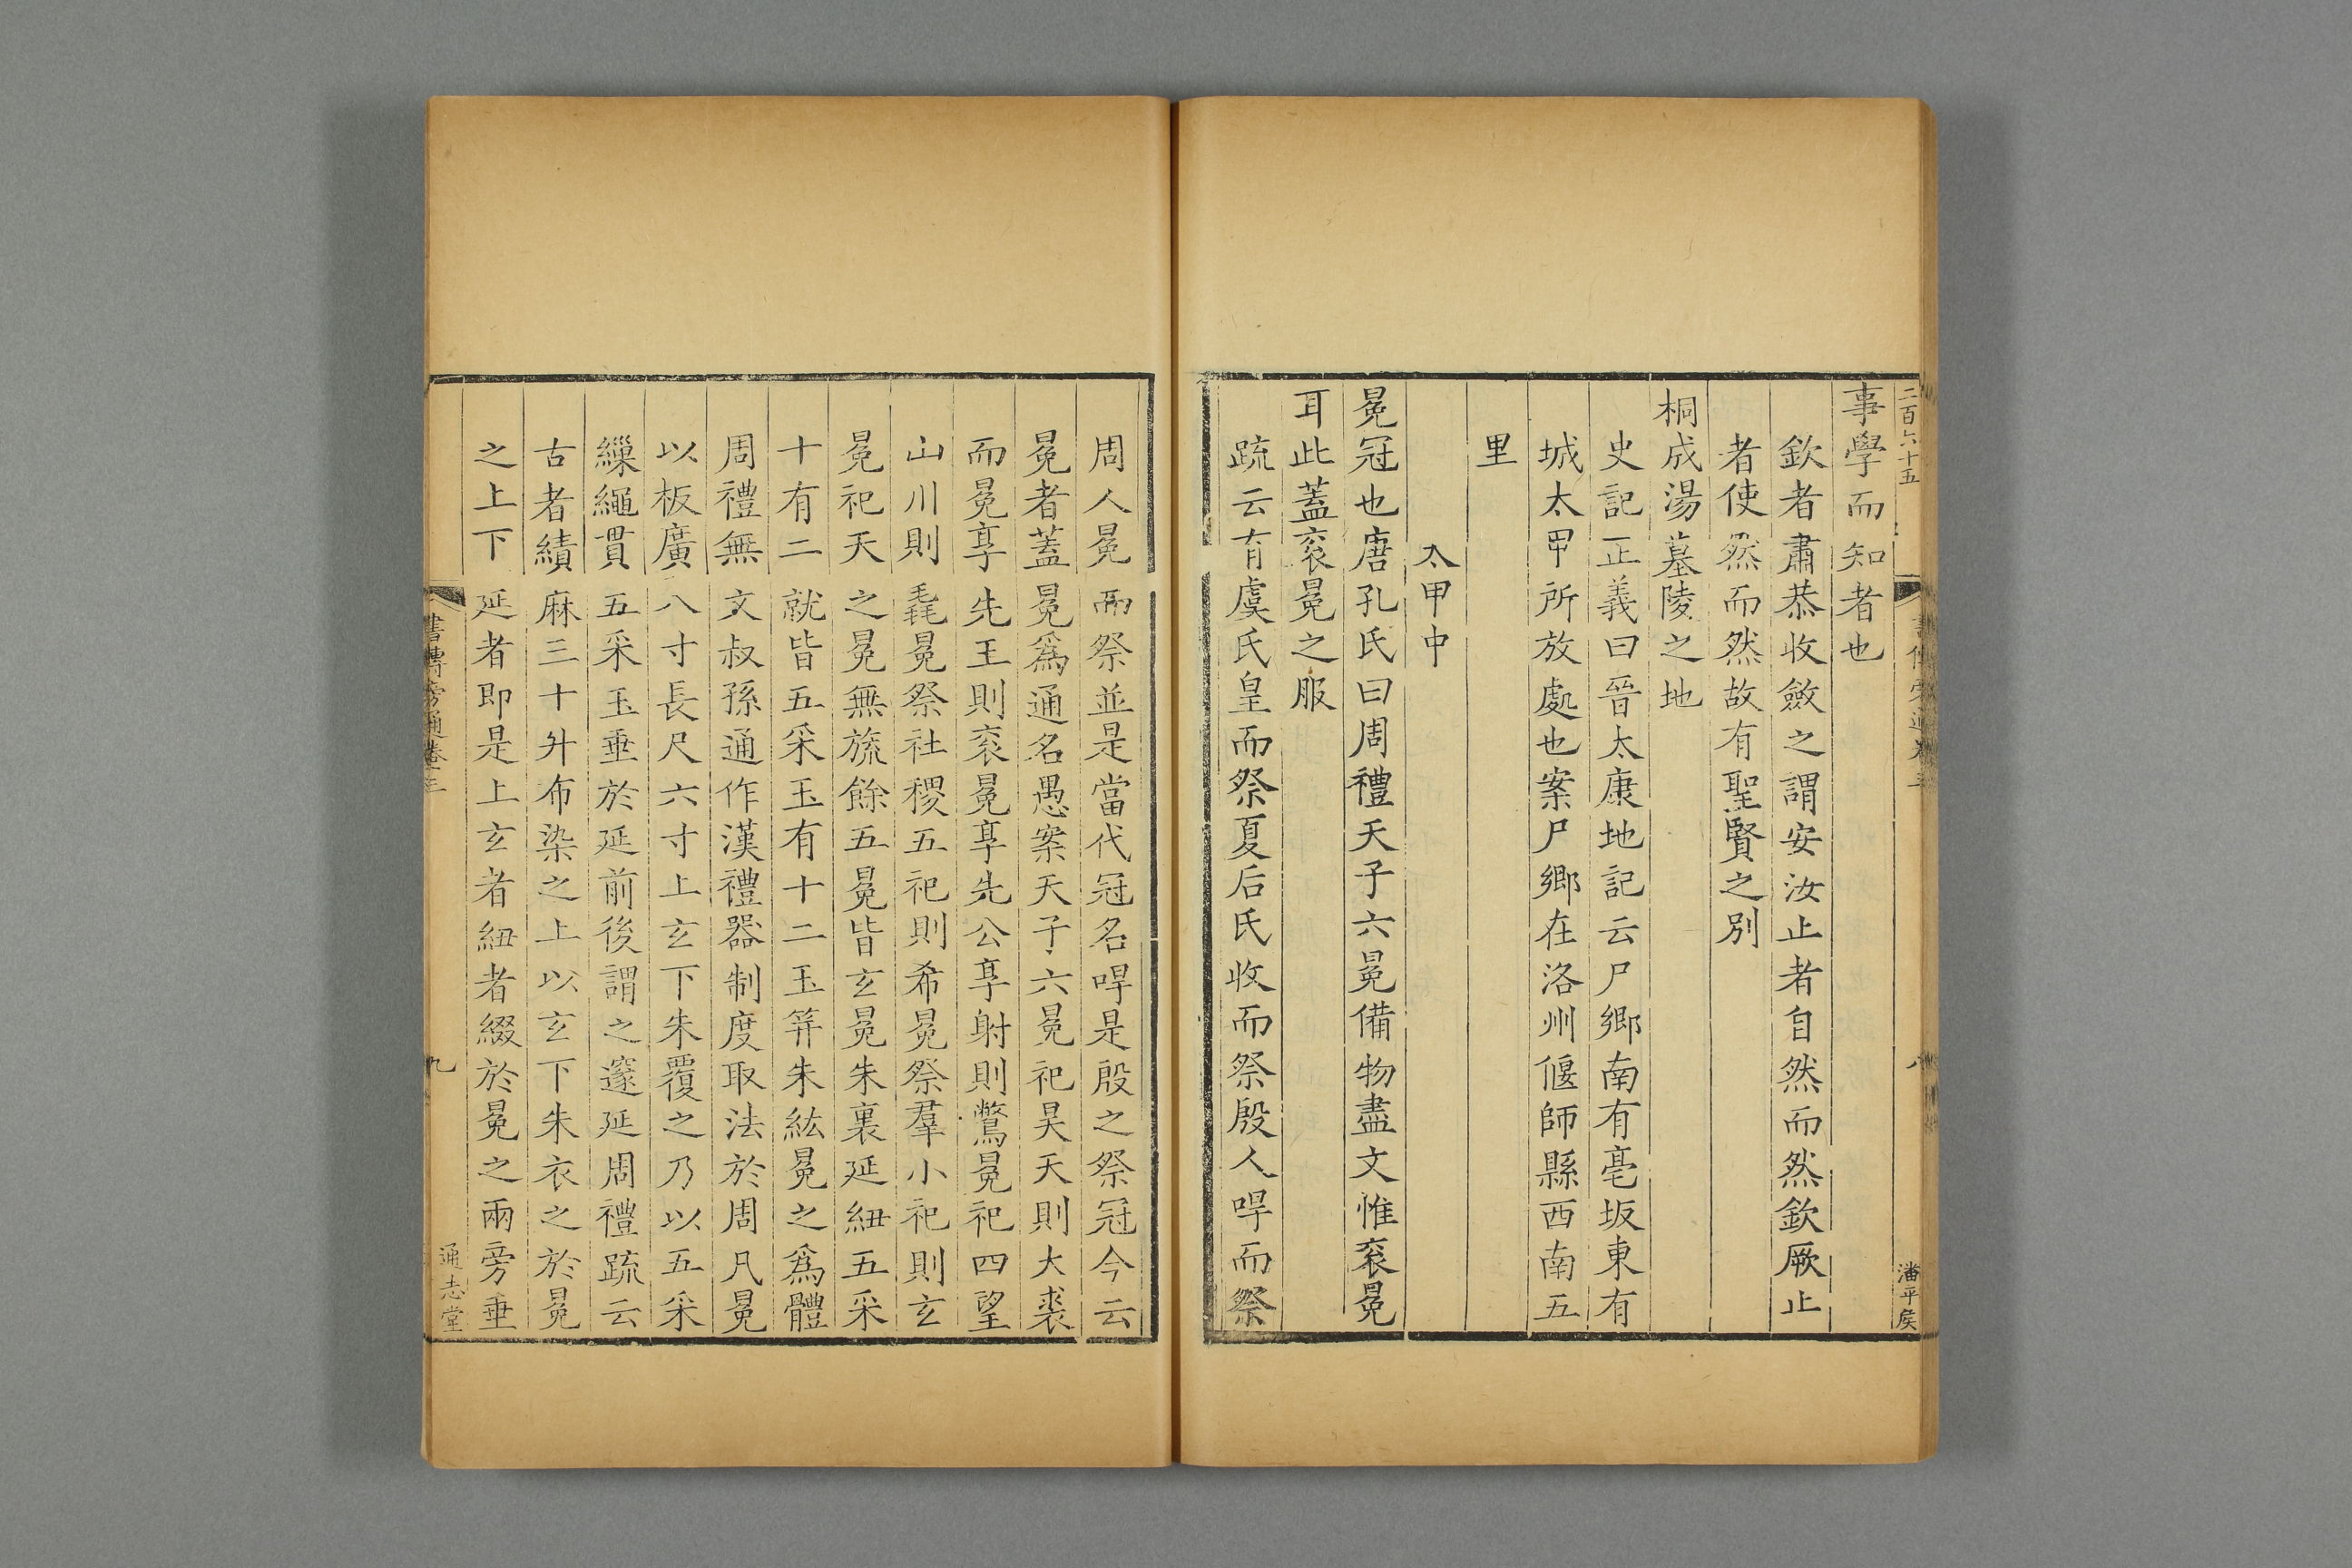 二百六十五
潘平侯
事學而知者也
欽者肅恭收斂之謂安汝止者自然而然欽厥止
者使然而然故有聖賢之別
桐成湯墓陵之地
史記正義曰晉太康地記云尸鄉南有亳坂東有
城太甲所放處也案尸鄉在洛州偃師縣西南五
里
太甲中
冕冠也唐孔氏曰周禮天子六冕備物盡文惟袞冕
耳此蓋袞冕之服
疏云有虞氏皇而祭夏后氏收而祭殷人哻而祭
周人冕而祭並是當代冠名哻是殷之祭冠今云
冕者蓋冕爲通名愚案天子六冕祀昊天則大裘
而冕享先王則袞冕享先公享射則鷩冕祀四望
山川則毳冕祭社稷五祀則希冕祭羣小祀則玄
冕祀天之冕無旒餘五冕皆玄冕朱裏延紐五采
十有二就皆五采玉有十二玉笄朱紘冕之爲體
周禮無文叔孫通作漢禮器制度取法於周凡冕
以板廣八寸長尺六寸上玄下朱覆之乃以五采
繅繩貫五采玉垂於延前後謂之邃延周禮疏云
古者績麻三十升布染之上以玄下朱衣之於冕
之上下延者即是上玄者紐者綴於冕之兩旁垂
書傳旁通卷三
九
通志堂